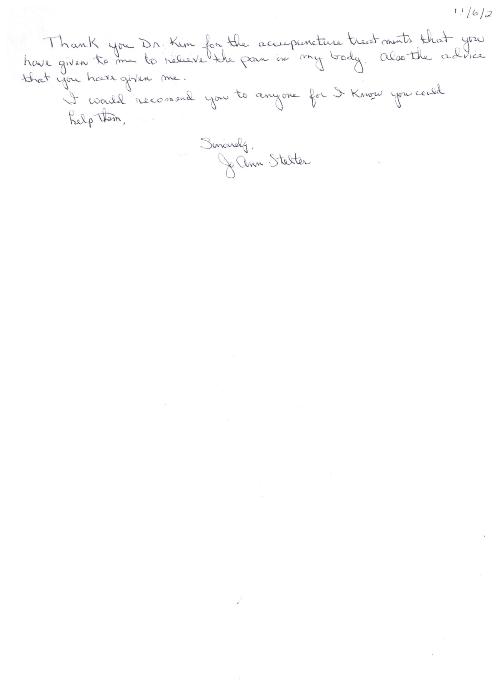 11/6/2
Thank you Dr. Kim for the acupuncture treatments that you
have given to me to relieve the pain in my body. Also the advice
that you have given me.
I would recomend you to anyone for I know you could
help them.
Sincerely,
Jo Ann